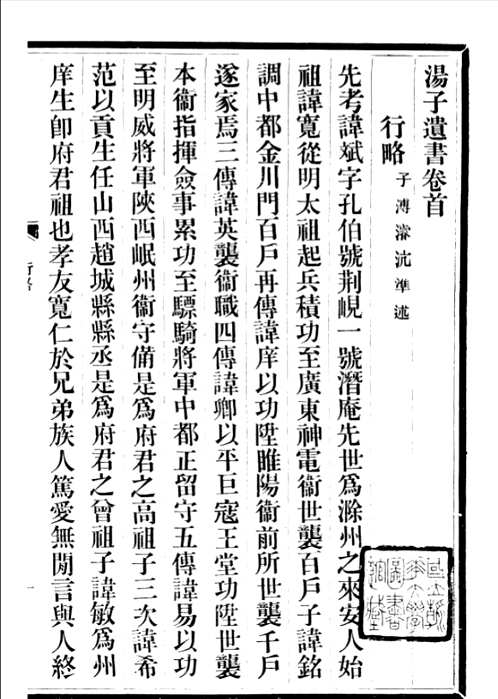 湯子遺書卷首
行略 子溥濬沆準述
先考諱斌字孔伯號荆峴一號潛庵先世爲滁州之來安人始
祖諱寬從明太祖起兵積功至廣東神電衞世襲百戶子諱銘
調中都金川門百戶再傳諱庠以功陞睢陽衞前所世襲千戶
遂家焉三傳諱英襲衞職四傳諱卿以平巨寇王堂功陞世襲
本衞指揮僉事累功至驃騎將軍中都正留守五傳諱易以功
至明威將軍陝西岷州衞守備是爲府君之高祖子三次諱希
范以貢生任山西趙城縣縣丞是爲府君之曾祖子諱敏爲州
庠生卽府君祖也孝友寬仁於兄弟族人篤愛無閒言與人終
行略
一